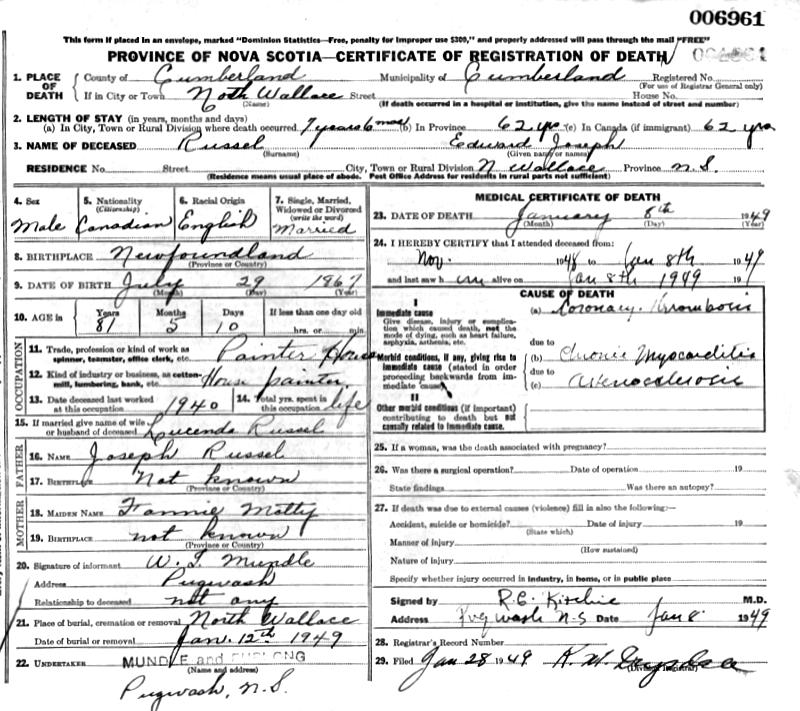 006961
This form if placed in an envelope, marked "Dominion Statistics—Free, penalty for improper use $300," and properly addressed will pass through the mail "FREE"
PROVINCE OF NOVA SCOTIA—CERTIFICATE OF REGISTRATION OF DEATH
1. PLACE OF DEATH
County of Cumberland Municipality of Cumberland Registered No.
(For use of Registrar General only)
If in City or Town Noth Wallace Street House No.
(Name) (If death occurred in a hospital or institution, give the name instead of street and number)
2. LENGTH OF STAY (in years, months and days)
(a) In City, Town or Rural Division where death occurred 7 years 6 mos (b) In Province 62 yrs (c) In Canada (if immigrant) 62 yrs
3. NAME OF DECEASED Russel Edward Joseph
(Surname) (Given name or names)
RESIDENCE No. Street City, Town or Rural Division N Wallace Province N.S.
(Residence means usual place of abode. Post Office Address for residents in rural parts not sufficient)
4. Sex 5. Nationality (Citizenship) 6. Racial Origin 7. Single, Married, Widowed or Divorced (write the word)
Male Canadian English Married
8. BIRTHPLACE Newfoundland
(Province or Country)
9. DATE OF BIRTH July 29 1867
(Month) (Day) (Year)
10. AGE in Years Months Days If less than one day old
81 5 10 hrs. or min.
OCCUPATION
11. Trade, profession or kind of work as spinner, teamster, office clerk, etc. Painter House
12. Kind of industry or business, as cotton-mill, lumbering, bank, etc. House painter
13. Date deceased last worked at this occupation 1940 14. Total yrs. spent in this occupation life
15. If married give name of wife or husband of deceased Lucenda Russel
FATHER
16. NAME Joseph Russel
17. BIRTHPLACE Not known
(Province or Country)
MOTHER
18. MAIDEN NAME Fannie Motty
19. BIRTHPLACE not known
(Province or Country)
20. Signature of informant W. L. Mundle
Address Pugwash
Relationship to deceased not any
21. Place of burial, cremation or removal North Wallace
Date of burial or removal Jan. 12th 1949
22. UNDERTAKER MUNDLE and
(Name and address)
Pugwash, N.S.
MEDICAL CERTIFICATE OF DEATH
23. DATE OF DEATH January 8th 1949
(Month) (Day) (Year)
24. I HEREBY CERTIFY that I attended deceased from:
Nov. 1948 to Jan 8th 1949
and last saw him alive on Jan 8th 1949 19
CAUSE OF DEATH
I
Immediate cause
Give disease, injury or complication which caused death, not the mode of dying, such as heart failure, asphyxia, asthenia, etc.
(a) Coronary Thrombosis
due to
Morbid conditions, if any, giving rise to immediate cause (stated in order proceeding backwards from immediate cause)
(b) Chronic Myocarditis
due to
(c) arteriosclerosis
II
Other morbid conditions (if important) contributing to death but not causally related to immediate cause.
25. If a woman, was the death associated with pregnancy?
26. Was there a surgical operation? Date of operation 19
State findings Was there an autopsy?
27. If death was due to external causes (violence) fill in also the following:
Accident, suicide or homicide? Date of injury 19
(State which)
Manner of injury
(How sustained)
Nature of injury
Specify whether injury occurred in industry, in home, or in public place
Signed by R.E. Kitchie M.D.
Address Pugwash N-S Date Jan 8 1949
28. Registrar's Record Number
29. Filed Jan 28 1949
(Division Registrar)